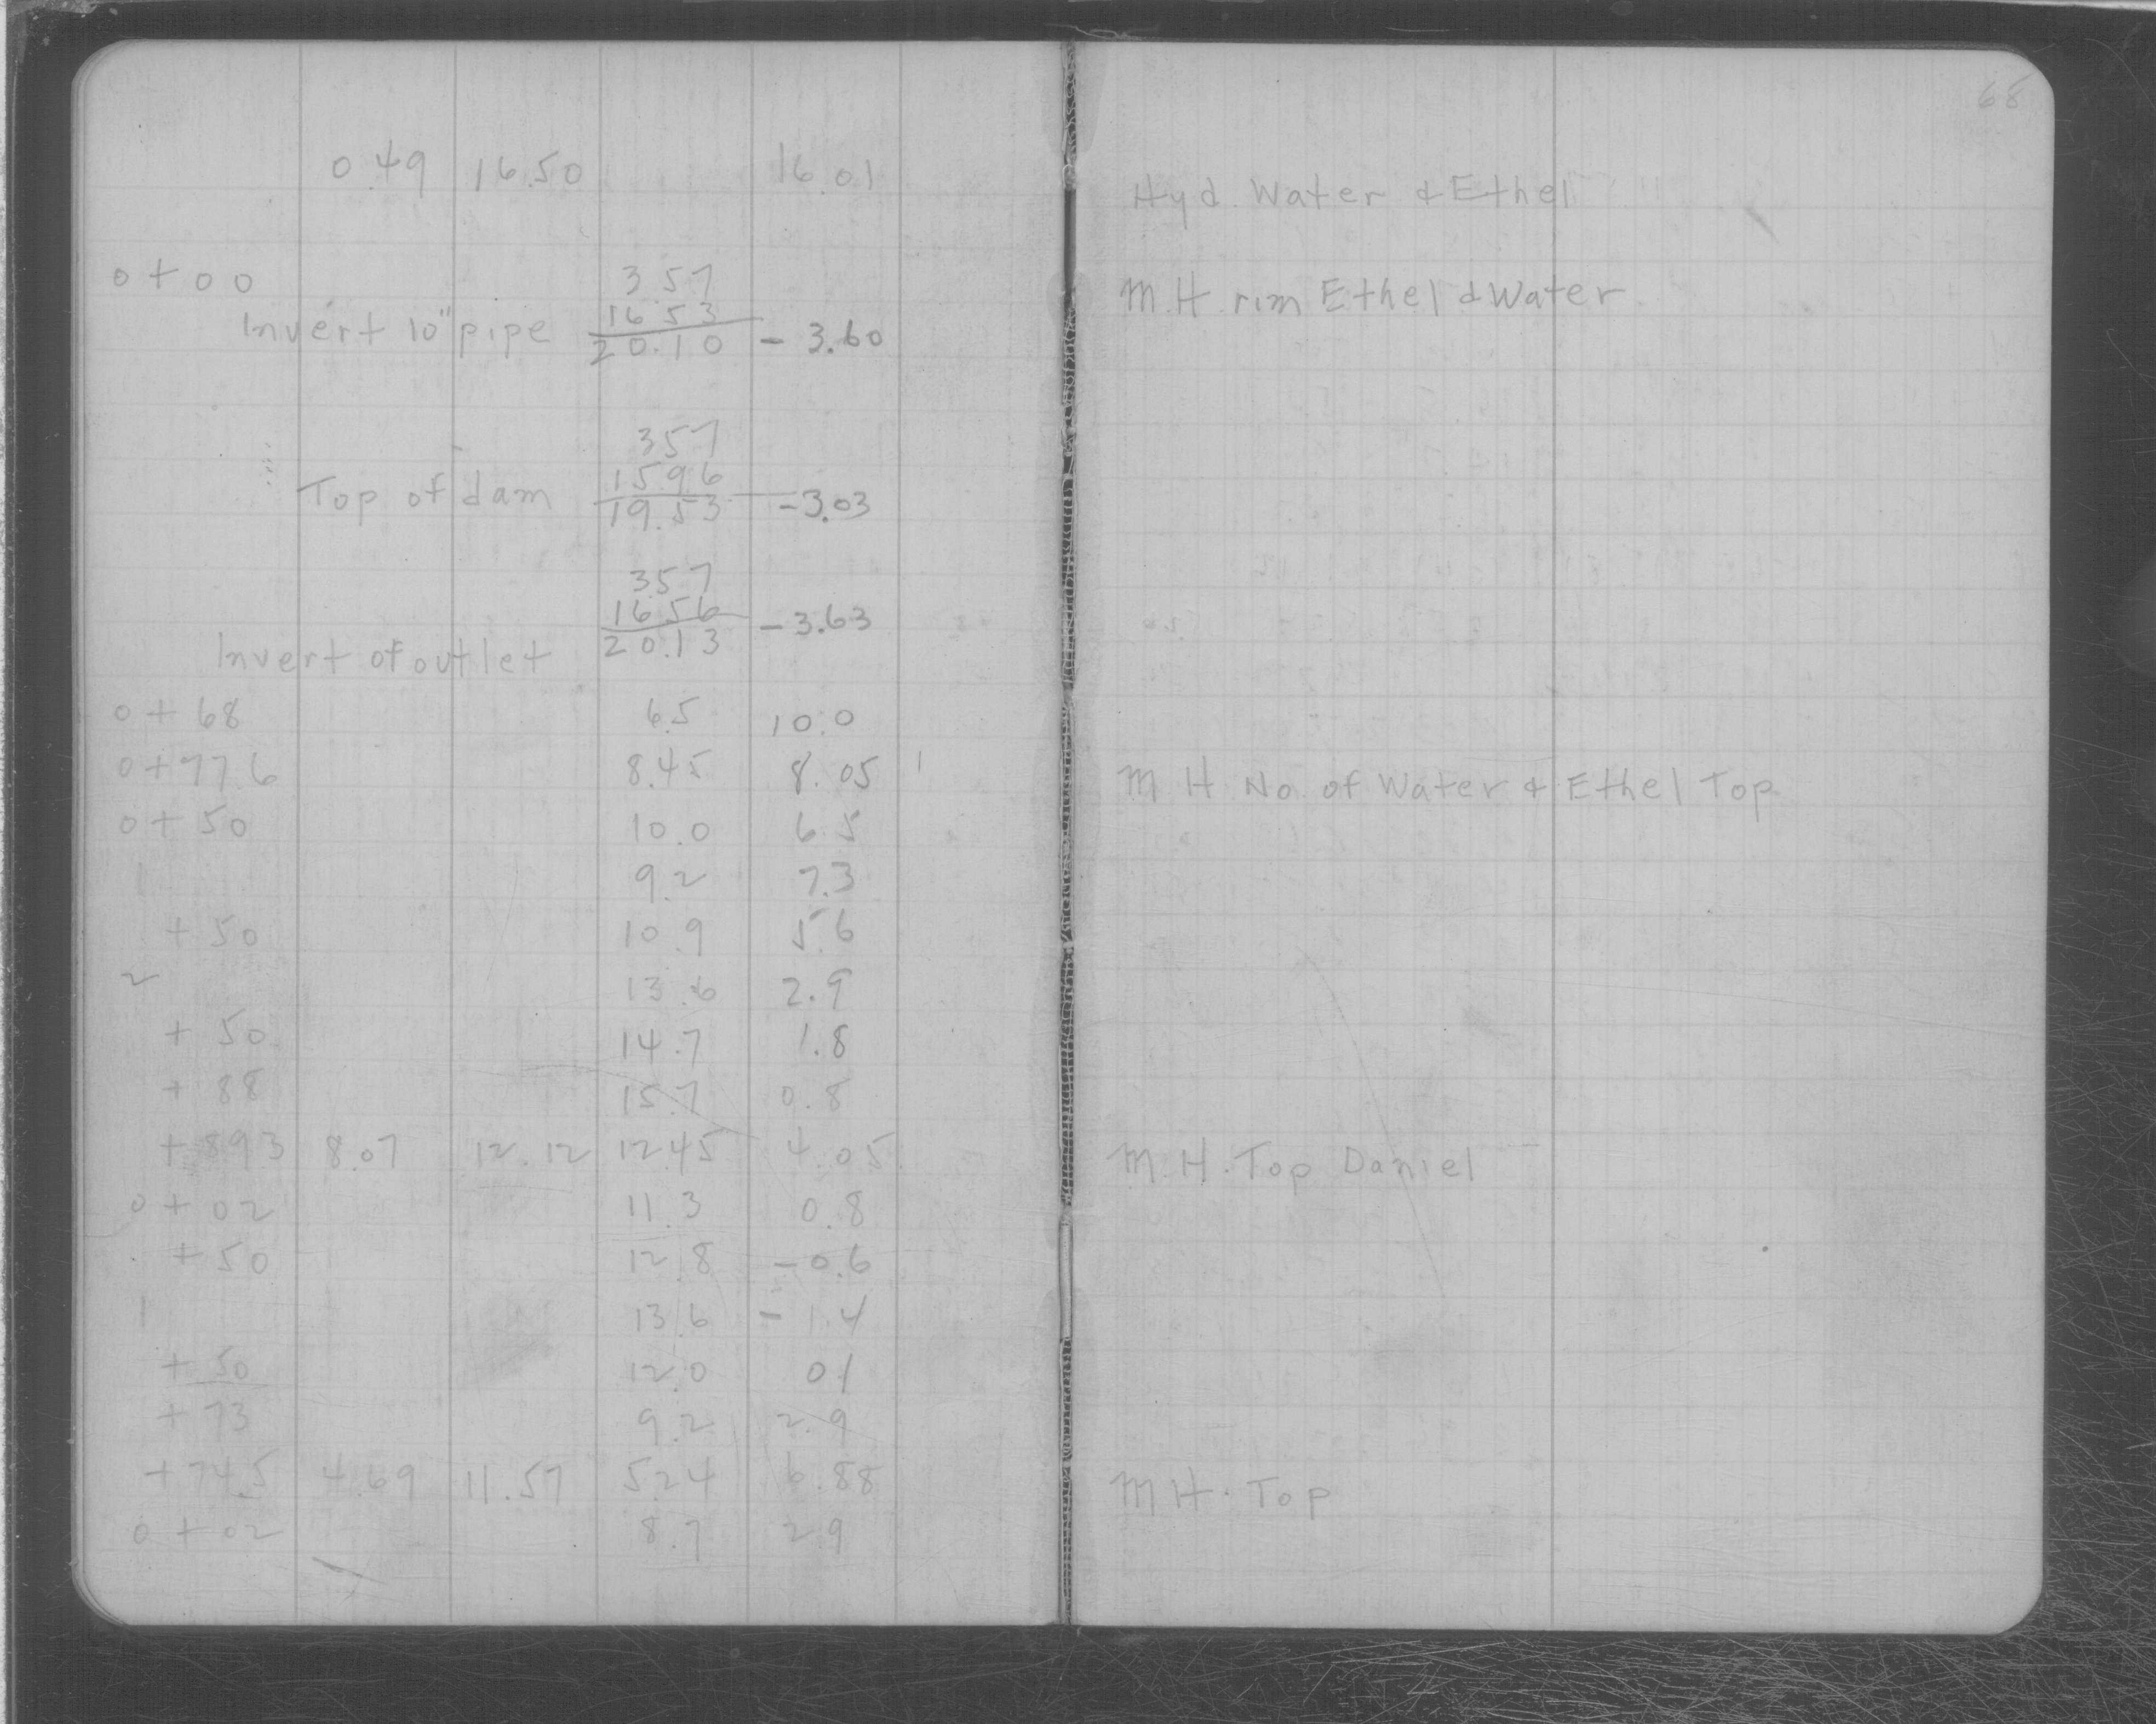 68
0.49 16.50 16.01 Hyd. Water & Ethel
0+00 3.57 M.H. rim Ethel & Water
16.53
Invert 10" pipe 20.10 -3.60
3.57
15.96
Top of dam 19.53 -3.03
3.57
16.56 -3.63
Invert of outlet 20.13
0+68 6.5 10.0
0+77.6 8.45 8.05 M H No. of Water & Ethel Top
0+50 10.0 6.5
1 9.2 7.3
+50 10.9 5.6
2 13.6 2.9
+50 14.7 1.8
+88 15.7 0.8
+89.3 8.07 12.12 12.45 4.05 M.H. Top Daniel
0+02 11.3 0.8
+50 12.8 -0.6
1 13.6 -1.4
+50 12.0 0.1
+73 9.2 2.9
+74.5 4.69 11.57 5.24 6.88 M H. Top
0+02 8.7 2.9